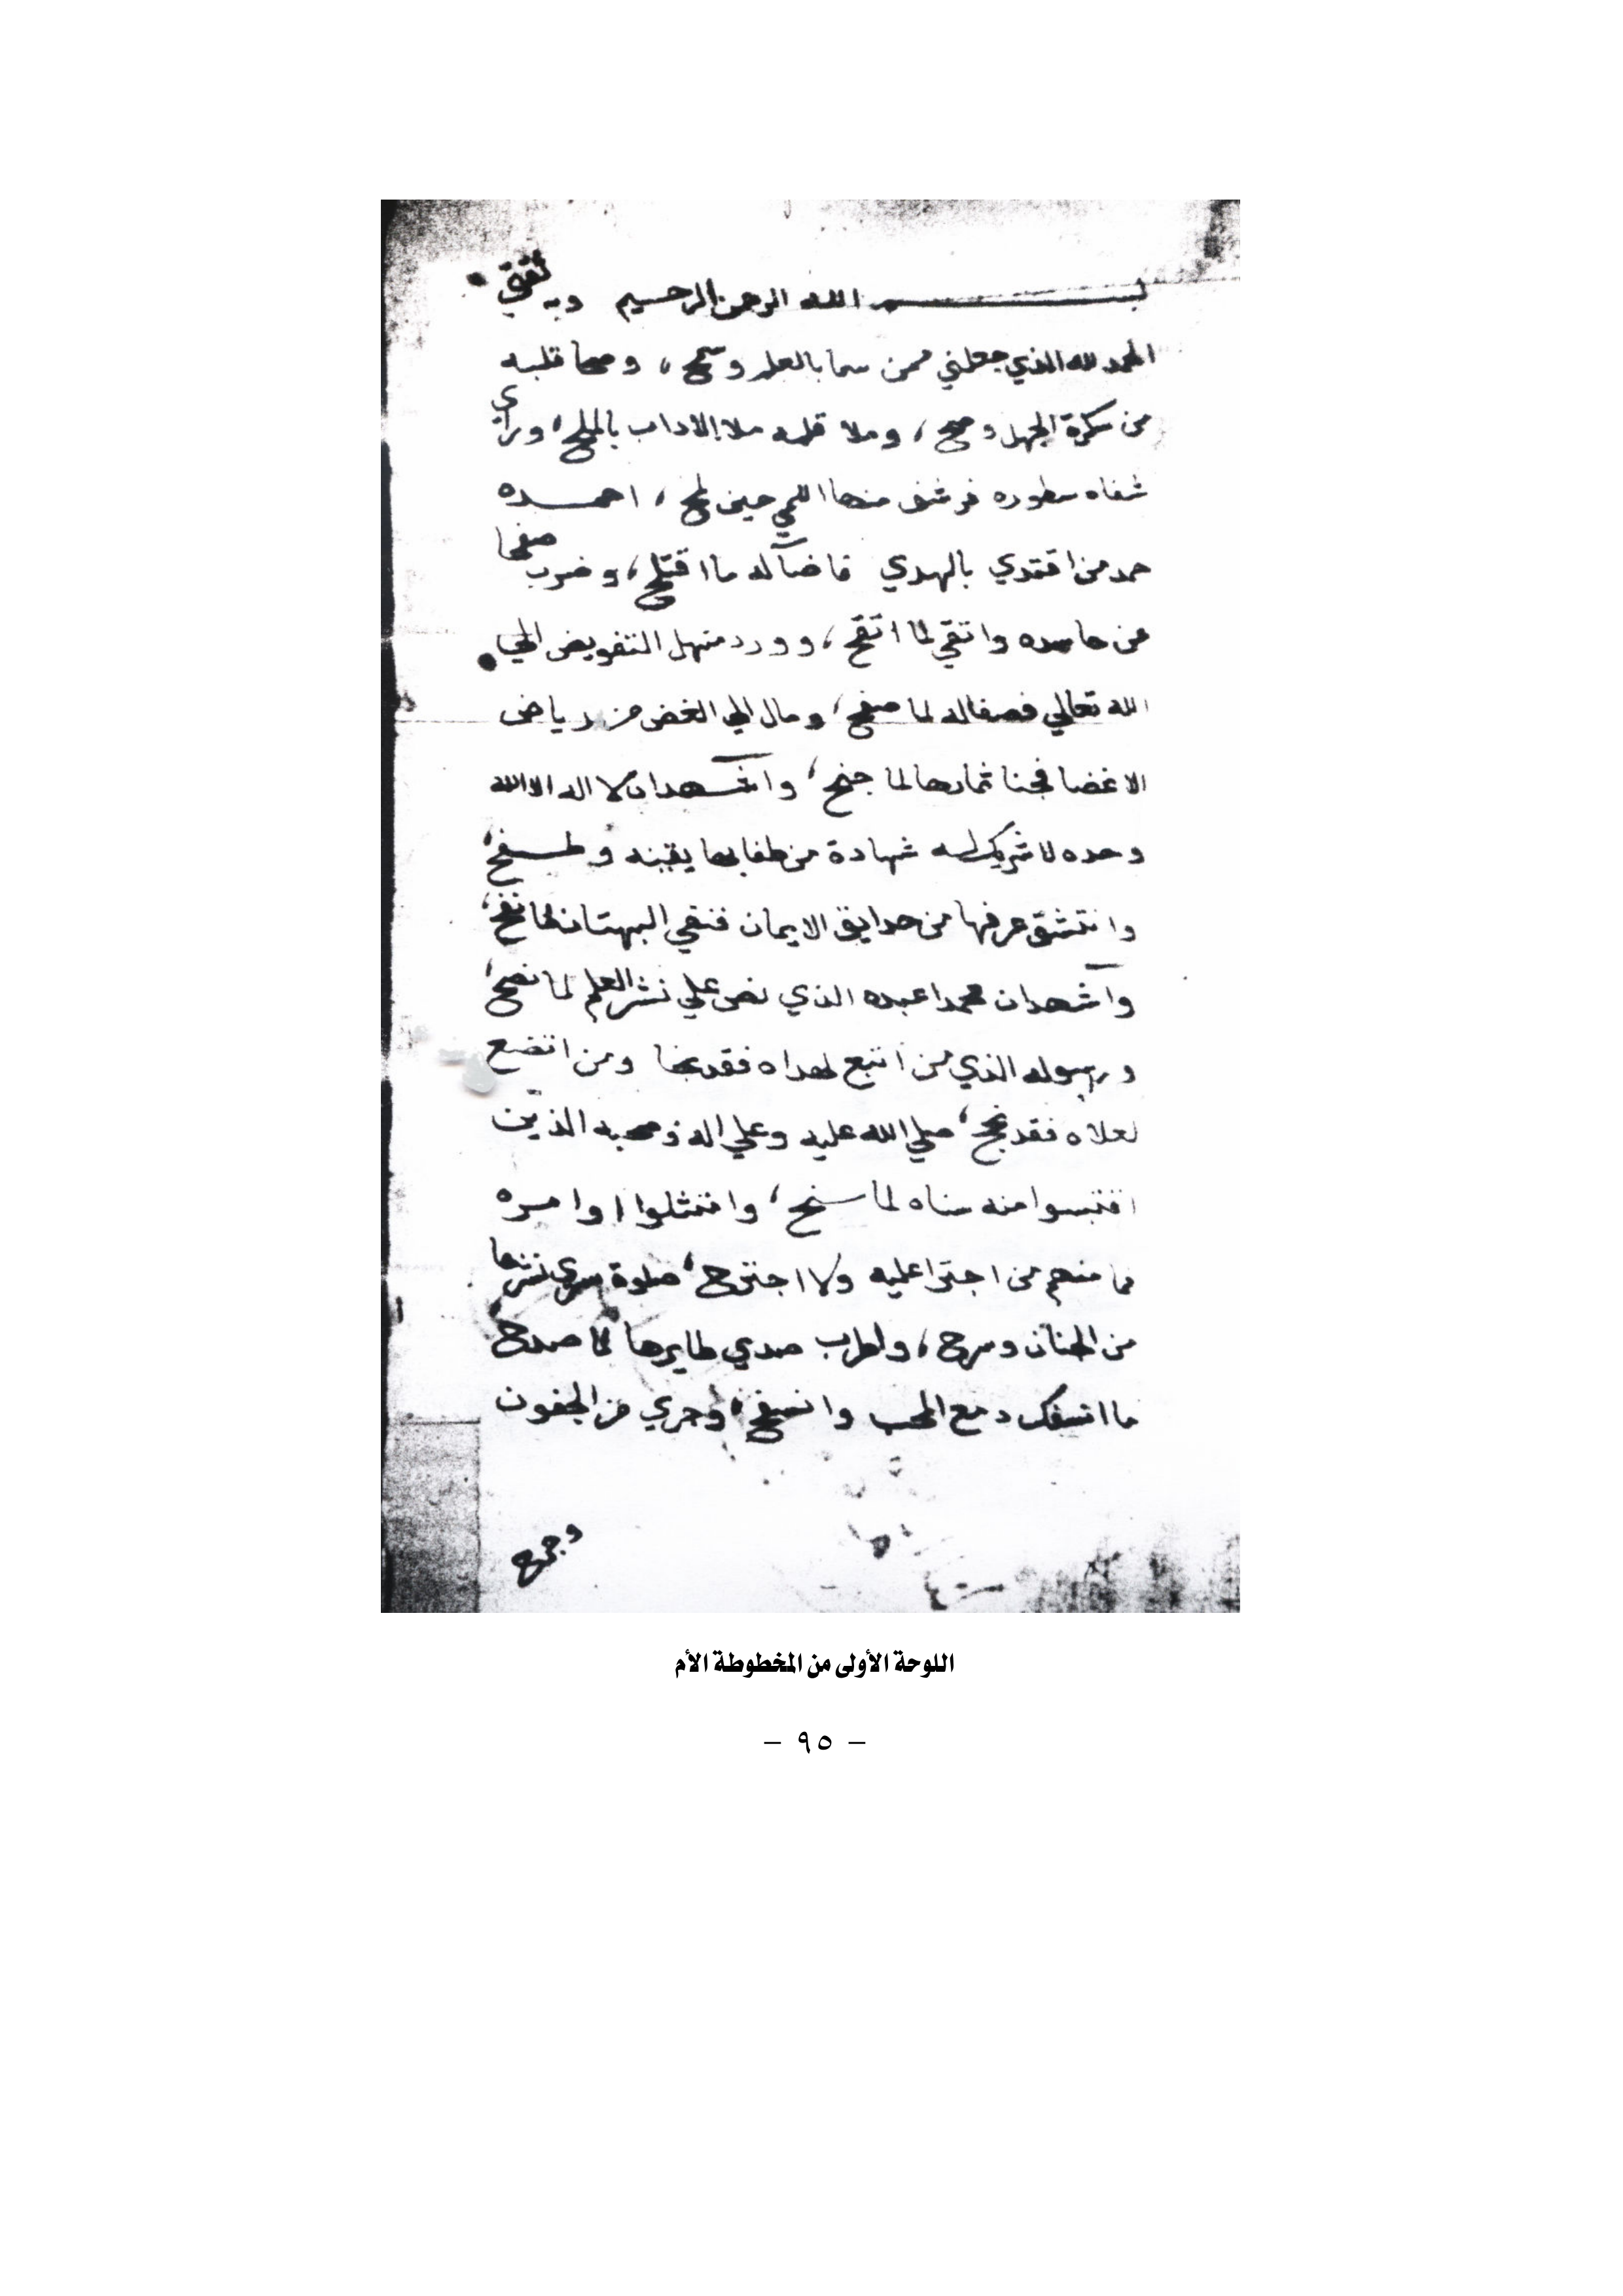 بسم الله الرحمن الرحيم وبه ثقتي
الحمد لله الذي جعلني ممن سما بالعلم وسمح، وصحا قلبه
من سكرة الجهل وصح، وملا قلمه ملا الاداب بالملح، وراي
شفاه سطوره فرشف منها اللمي حين لمح، احمده
حمد من اقتدي بالهدي فاضآ له ما اقتلح، وضرب صفحا
عن حاسده واتقي لما اتقح، وورد منهل التفويض الي
الله تعالي فصفا له لما صفح، ومال الي الغض من رياض
الاغضا فجنا ثمارها لما جنح، واشهد ان لا اله الا الله
وحده لا شريك له شهادة من طفا بها يقينه وطفح،
وانتشق عرفها من حدايق الايمان فنفي البهتان لما نفح،
واشهد ان محمدا عبده الذي نص علي نشر العلم لما نصح،
ورسوله الذي من اتبع هداه فقد نجا ومن اتضع
لعلاه فقد نجح، صلي الله عليه وعلي اله وصحبه الذين
اقتبسوا منه سناه لما سنح، وامتثلوا اوامره
فما منهم من اجترا عليه ولا اجترح، صلوة سري نشرها
من الجنان وسرح، واطرب صدي طايرها لما صدح
ما انسفك دمع المحب وانسفح، وجري من الجفون
وجرح
اللوحة الأولى من المخطوطة الأم
– ٩٥ –